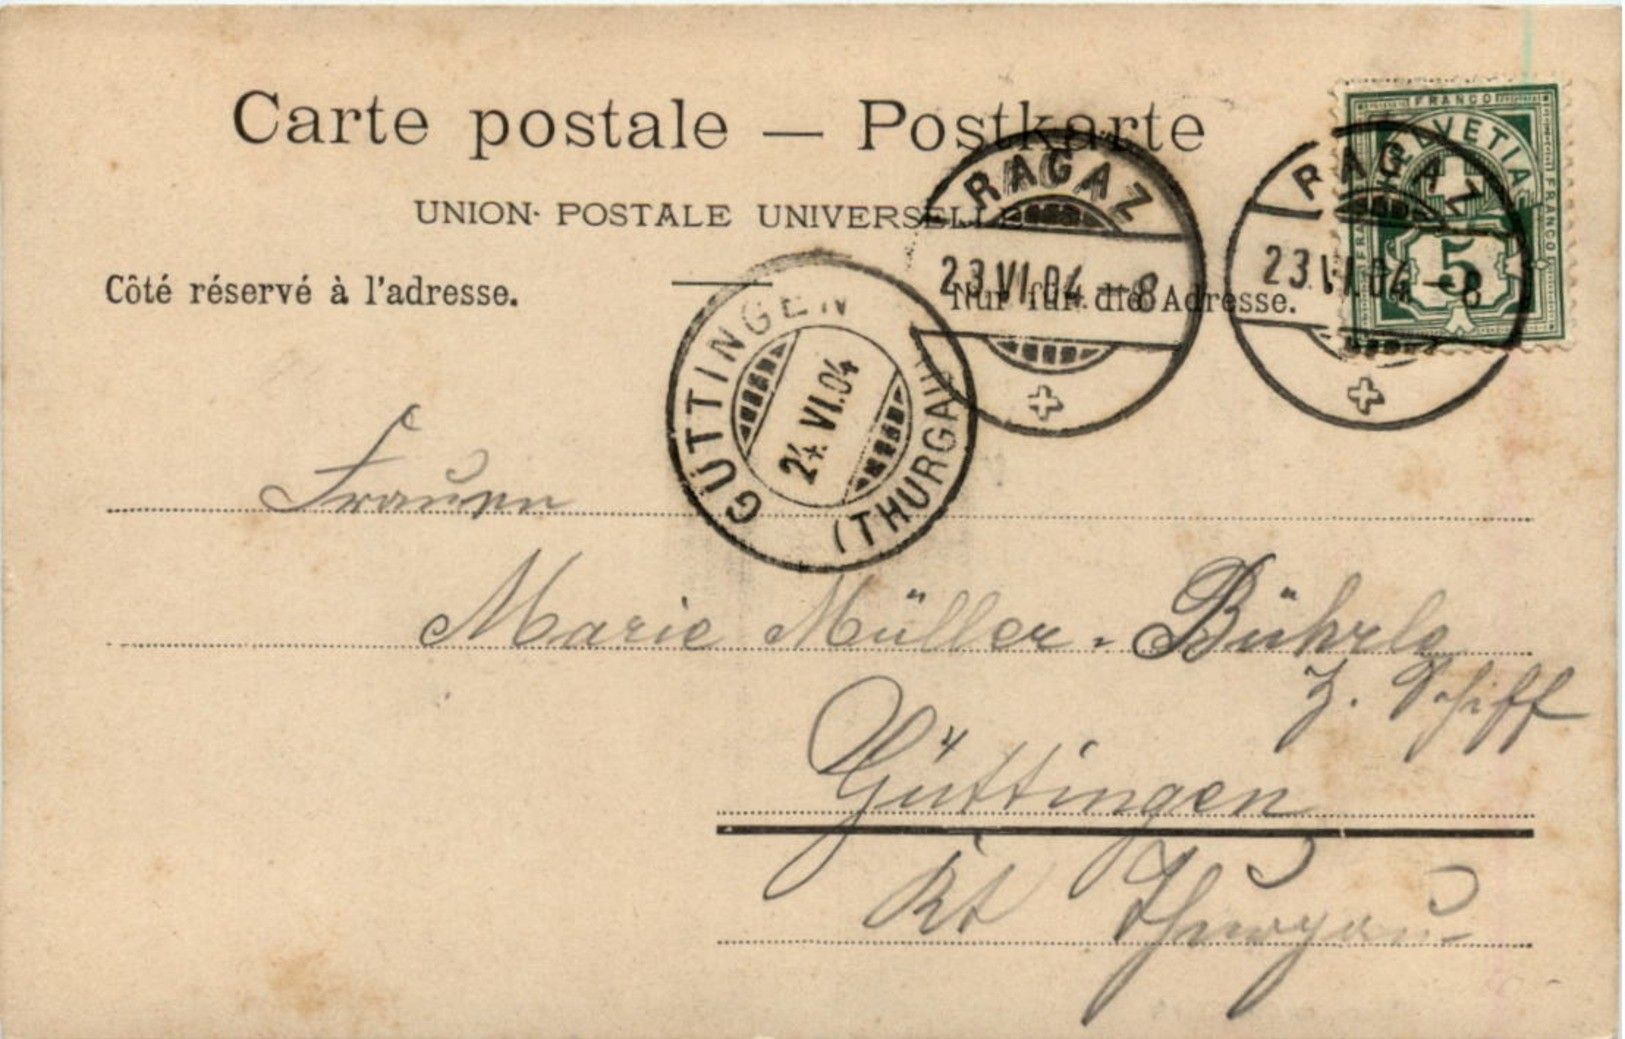 Carte postale — Postkarte
UNION POSTALE UNIVERSELLE
Côté réservé à l'adresse.
Nur für die Adresse.
FRANCO
HELVETIA
FRANCO
5
RAGAZ
23.VI.04.–8
RAGAZ
23.VI.04.–8
GÜTTINGEN
24.VI.04
(THURGAU)
Frauen
Marie Müller-Bührle
z. Schiff
Güttingen
Kt Thurgau